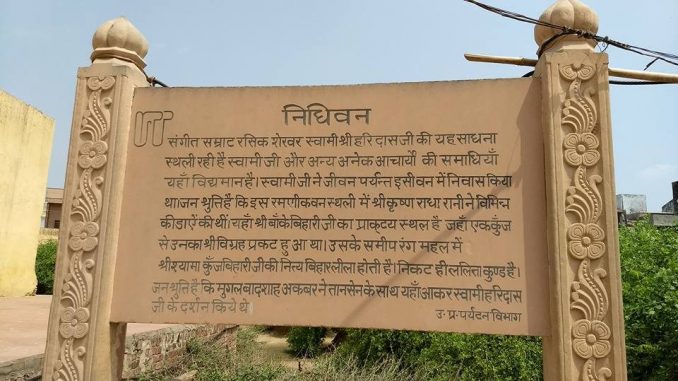 निधिवन
संगीत सम्राट रसिक शेरवर स्वामी श्री हरिदास जी की यह साधना
स्थली रही है स्वामी जी और अन्य अनेक आचार्यो की समाधियाँ
यहाँ विद्यमान है। स्वामीजी ने जीवन पर्यन्त इसी वन में निवास किया
था। जन श्रुति है कि इस रमणीक वन स्थली में श्री कृष्ण राधा रानी ने विभिन्न
क्रीडाऐं की थीं। यहाँ श्री बाँके बिहारी जी का प्राकृट्य स्थल है जहाँ एक कुँज
से उनका श्री विग्रह प्रकट हुआ था। उसके समीप रंग महल में
श्री श्यामा कुँजबिहारी जी की नित्य बिहार लीला होती है। निकट ही ललिता कुण्ड है।
जनश्रुति है कि मुगल बादशाह अकबर ने तानसेन के साथ यहाँ आकर स्वामी हरिदास
जी के दर्शन किये थे
उ॰ प्र॰ पर्यटन विभाग